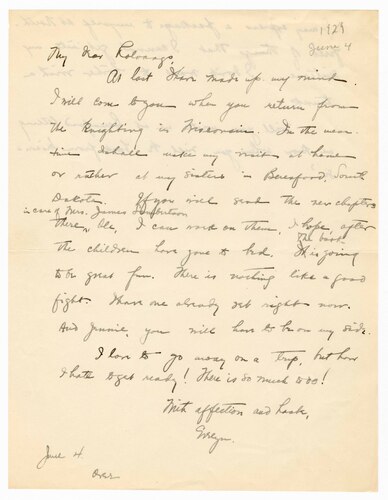 1929
June 4
My dear Rolvaags,
At last I have made up my mind.
I will come to you when you return from
the Knighting in Wisconsin. In the mean
time I shall make my visit at home
or rather at my sisters in Beresford, South
Dakota. If you will send the new chapters
in care of Mrs. James
there, I can work on them, I hope, after
The book
the children have gone to bed. It is going
to be great fun. There is nothing like a good
fight. I have one already set right now.
And Jennie, you will have to be on my side.
I love to go away on a trip, but how
I hate to get ready! There is so much to do!
With affection and haste,
June 4
Over